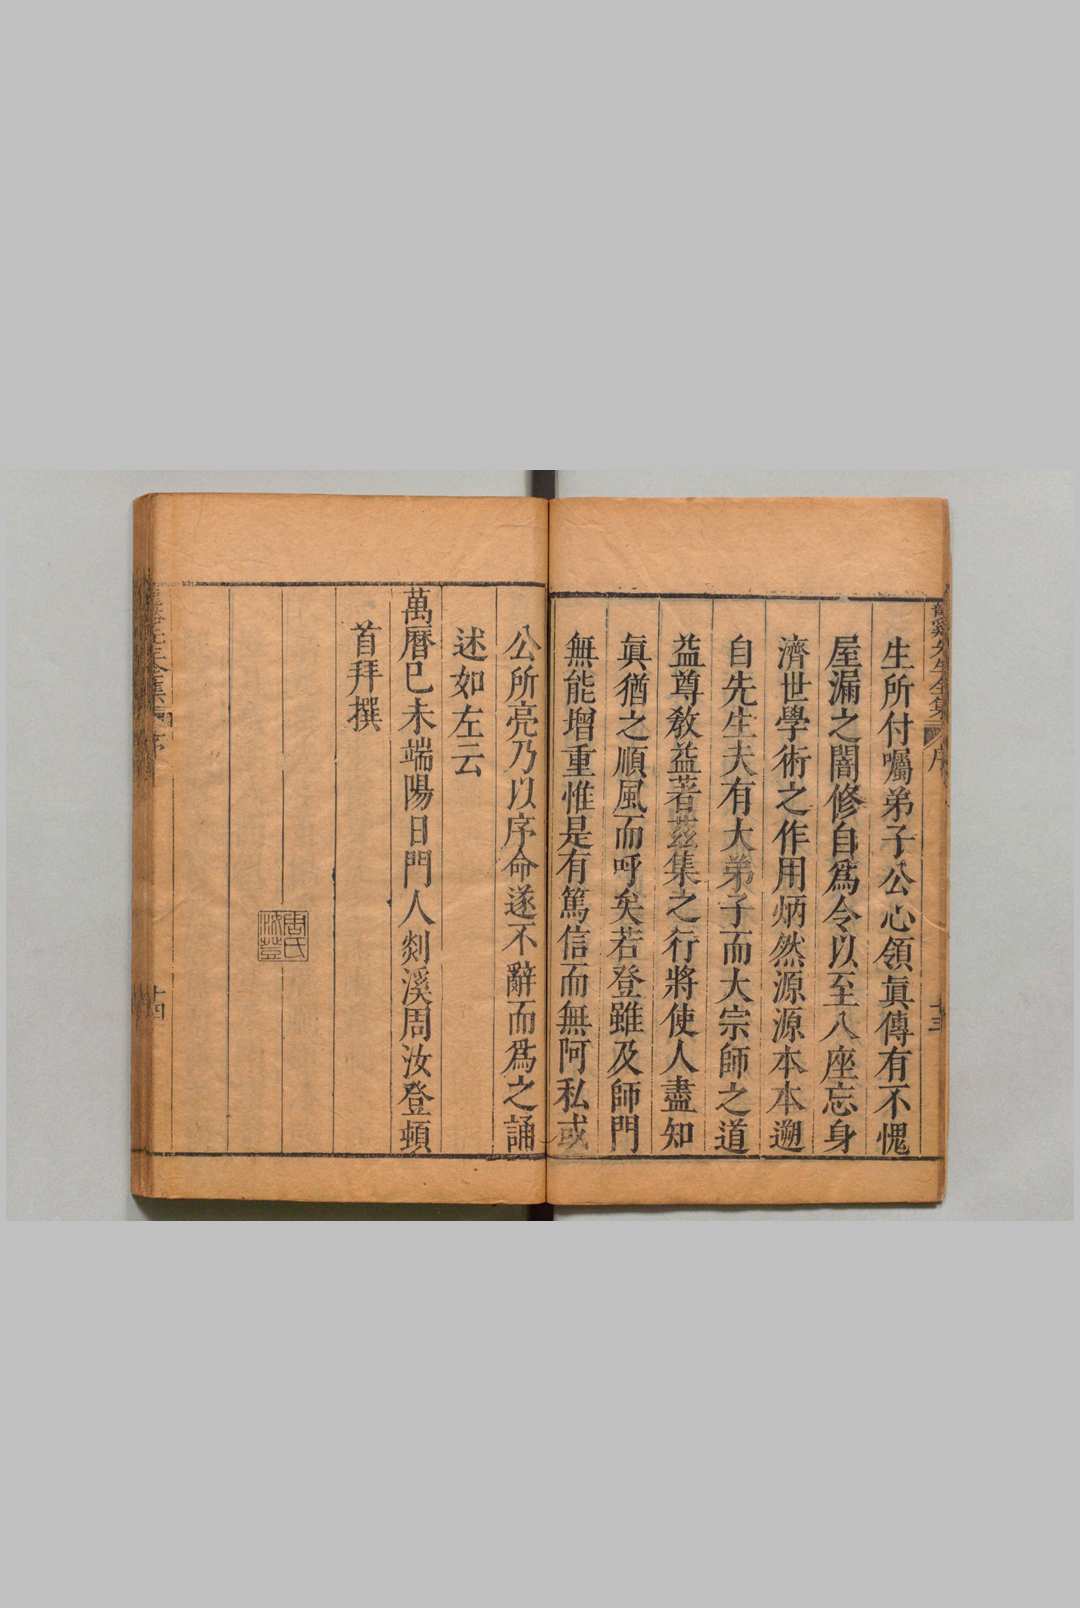 龍谿先生全集 序 十三
生所付囑弟子公心領眞傳有不愧
屋漏之闇修自爲令以至八座忘身
濟世學術之作用炳然源源本本遡
自先生夫有大弟子而大宗師之道
益尊敎益著茲集之行將使人盡知
眞猶之順風而呼矣若登雖及師門
無能增重惟是有篤信而無阿私或
公所亮乃以序命遂不辭而爲之誦
述如左云
萬曆己未端陽日門人剡溪周汝登頓
首拜撰
唐氏
龍谿先生全集 序 十四